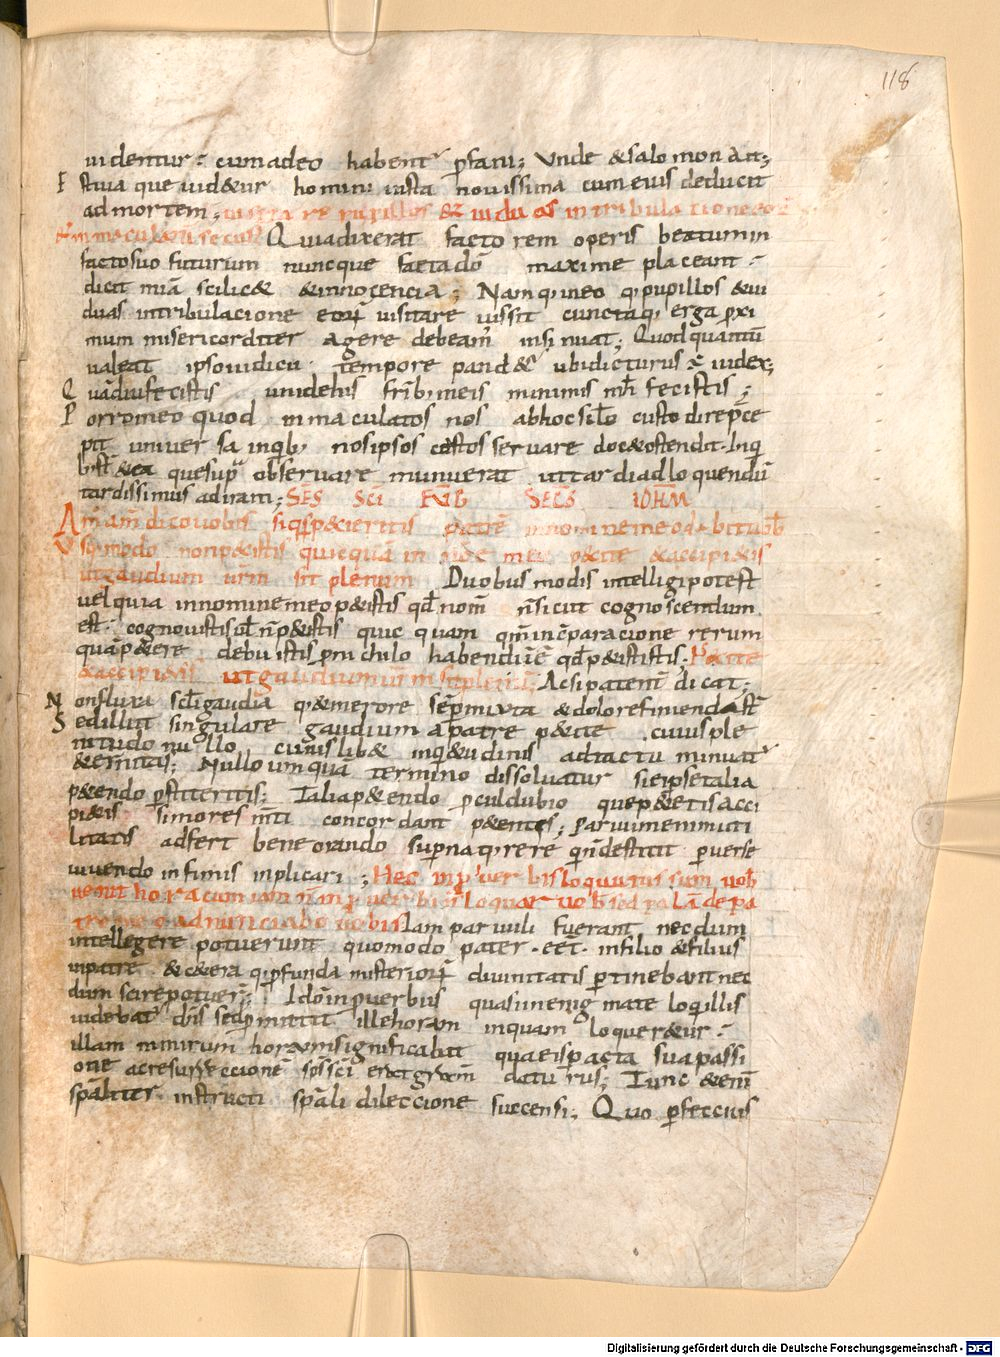 118
uidentur: cum adeo habent᷑ ꝓfani; Unde & salomon Ait;
Est uia que uid&ur homini iusta nouissima cum eius deducit
ad mortem; uisitare pupillos & uiduas in tribulatione eoꝝ
& inmaculatū se cus Quia dixerat factorem operis beatum in
facto suo futurum nunc que facta dō maxime placeant:
dicit miā scilic& & innocencia; Nam qͥ in eo qͥ pupillos & ui
duas in tribulacione eoꝝ uisitare iussit cuncta qͥ erga pꝛoxi
mum misericorditer agere debeam᷑ insinuat; Quod quantū
ualeat ipso iudicii tempore pand&᷑ ubi dicturus ē iudex;
Quādiu fecistis uni de his frīb; meis minimis mͥh fecistis;
Porro in eo quod inmaculatos nos ab hoc sc̄lo custodire p̄ce
pit uniuersa in qͥb; nos ipsos castos seruare doc& ostendit. Inqͥ
bus ē & ea que supͣ obseruare munuerat ut tardi ad loquendū
tardi simus ad iram; SES SC̄I EU̅B SECD̅S IOHM̅
Am̄ am̄ dico uobis siqͥd p&ieritis patrē in nomine meo dabit uob̄
Usq; modo non p&istis quicquā in noīe meo p&ite & accipi&is
ut gaudium ur̄m sit plenum Duobus modis intelligi potest
uel quia in nomine meo p&istis qd̄ nom̄ n̄ sicut cognoscendum
est: cognouistis ul̄ n̄ p&istis quicquam qm̄ in cōparacione rerum
quā p&ere debuistis pro nichilo habendū ē qd̄ p&istis; P&ite
& accipi&is ut gaudium ur̄m sit plenū; Ac si patent̄ dicat;
Non fluxa sc̄li gaudia q; & merore sēp mixta & dolore finienda st̄
Sed illut singulare gaudium a patre p&ite cuius ple
nitudo nullo cuiuslib& inqui&udinis adtactu minuat᷑
& et̄nitas; Nullo umquā termino dissoluatur si ei p se talia
p&endo pstiteritis; Talia p&endo ꝓcul dubio que p&etis acci
pi&is si mores mͥti concordant p&entes; Paruum enim uti
litatis adfert bene orando supͣna qͥrere qn̄ destitit peruerse
uiuendo infimis inplicari; Hec in pꝛouerbiis locutus sum uob̄
uenit hora cum iam n̄ in pꝛouerbiis loquar uob̄ sed palā de pa
tre meo adnunciabo uobis Iam paruuli fuerant necdum
intellegere potuerunt quomodo pater ·eēt· in filio & filius
in patre & c&era q; ꝓfunda misterioꝝ diuinitatis pertinebant nec
dum scire potuer̄; Ido in pꝛouerbiis quasi in enigmate loqͥ illis
uidebat᷑ dn̄s sed pmittit illis horam in quam loquer&ur:
illam nimirum horam significabat qua eis pacta sua passi
one ac resurreccione sp̄s sc̄i erat grā̅m daturus; Tunc & eni̅
sp̄aliter instructi sp̄ali dileccione succensi; Quo pfeccius
Digitalisierung gefördert durch die Deutsche Forschungsgemeinschaft - DFG